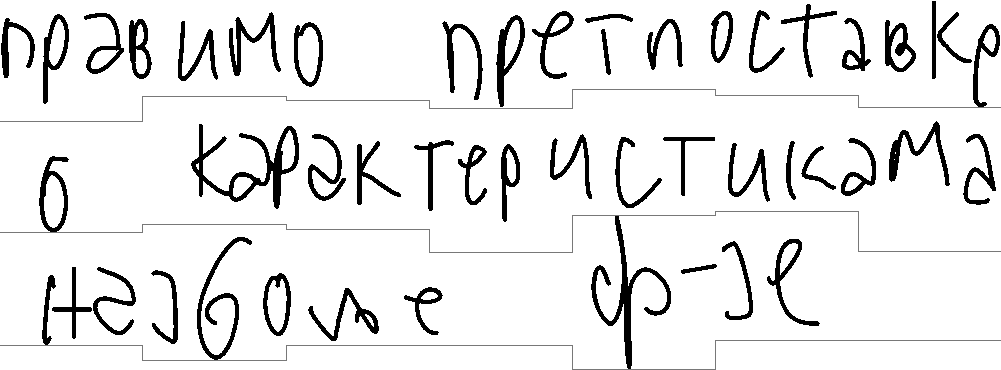 правимо претпоставке
о карактеристикама
најбоље ф-је